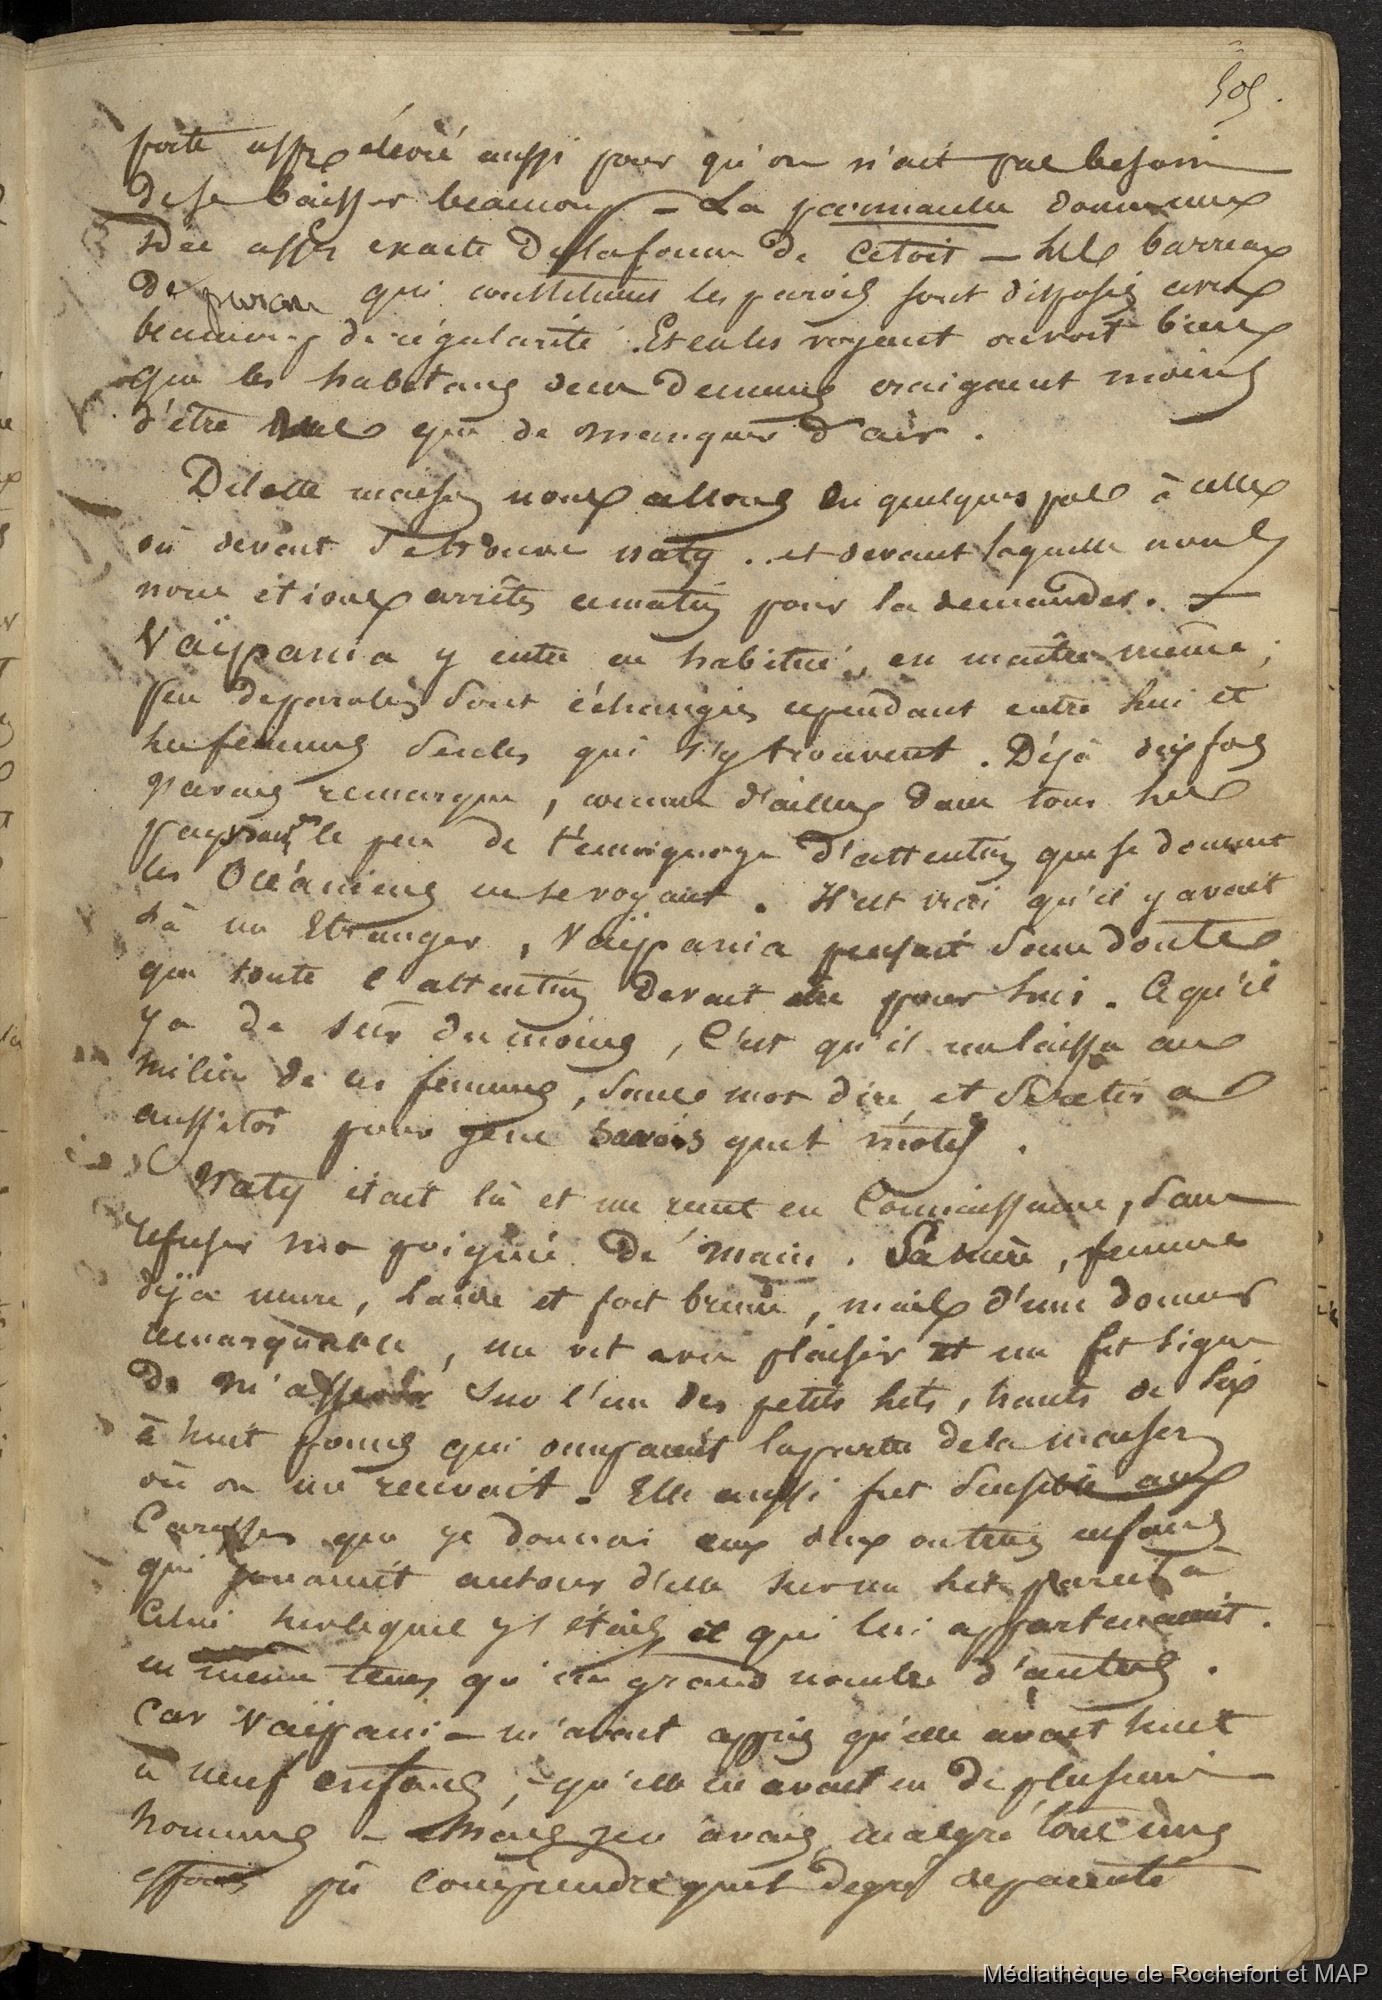 505.
porte assez élevée aussi pour qu'on n'ait pas besoin
de se baisser beaucoup – La donne une
idée assez exacte de la forme de ce toit – les barreaux
de qui constituent les parois sont disposés avec
beaucoup de régularité. Et en les voyant on voit bien
que les habitans de ces demeures craignent moins
d'être vus que de manquer d'air.
De cette maison nous allons en quelques pas à celle
où devait se trouver Naty .. et devant laquelle nous
nous étions arrêtés ce matin pour la demander. –
Vaïpania y entre en habitué, en maître même;
peu de paroles sont échangées cependant entre lui et
les femmes seules qui s'y trouvent. Déjà dix fois
j'avais remarqué, comme d'ailleurs dans tous les
pays le peu de témoignage d'attention que se donnent
les Océaniens en se voyant. Il est vrai qu'il y avait
là un Etranger, Vaïpania pensait sans doute
que toute l'attention devait être pour lui. Ce qu'il
y a de sûr du moins, c'est qu'il me laissa au
milieu de ces femmes, sans mot dire, et se retira
aussitôt pour je ne savais quel motif.
Naty était là et me reçut en connaissance, sans
refuser ma poignée de main. Sa mère, femme
déja mure, laide et fort brune, mais d'une douceur
remarquable, me vit avec plaisir et me fit signe
de m'asseoir sur l'un des petits lits, hauts de six
à huit pouces qui occupaient la partie de la maison
où on me recevait. Elle aussi fut sensible aux
caresses que je donnai aux deux autres enfans
qui jouaient autour d'elle sur un lit pareil à
celui sur lequel j'étais et qui lui appartenaient.
en même tems qu'un grand nombre d'autres.
Car Vaïpani – m'avait appris qu'elle avait huit
à neuf enfans, – qu'elle en avait eu de plusieurs
hommes – Mais je n'avais, malgré tous mes
efforts pû comprendre quel degré de parenté
Médiathèque de Rochefort et MAP